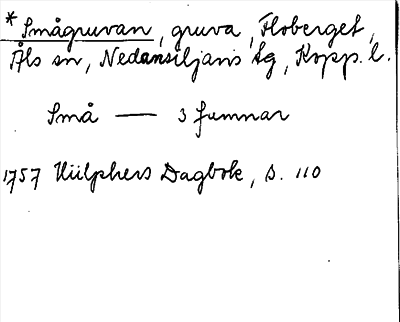 * Smågruvan, gruva, Floberget,
Åls sn, Nedansiljans tg, Kopp. l.
Små — 3 fumnar
1757 Hülphers Dagbok, s. 110